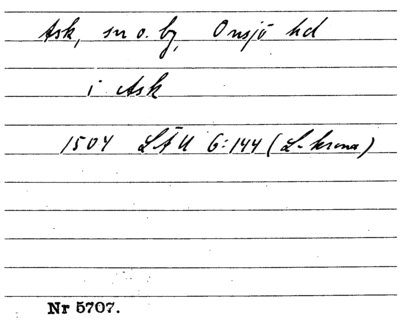 Ask, sn o. by, Onsjö hd
i Ask
1504 LÄU 6:144 (L-krona)
Nr 5707.